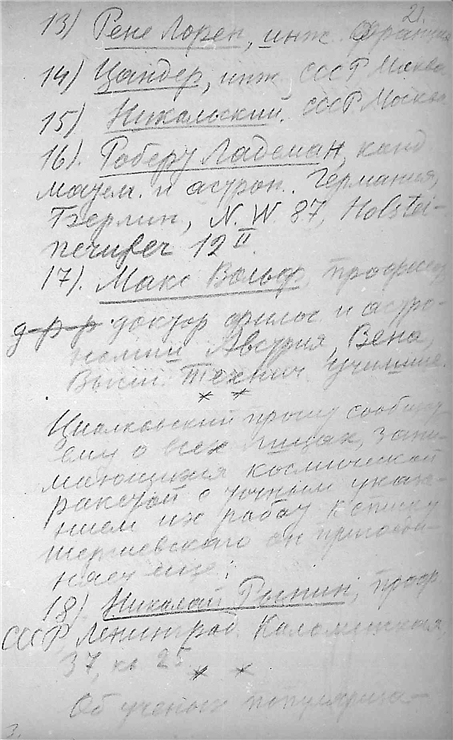 21.
13) Рене Лорен, инж. Франция
14) Цандер, инж СССР Москва
15) Никольский. СССР Москва
16). Роберт Ладеман, канд
матем. и астрон. Германия,
Берлин, N.W 87, Holstei-
nerufer 12 II.
17). Макс Вольф, професс.
д р р доктор филос и астро-
номии Австрия, Вена,
Высш. Технич. училище.
* *
Циолковский прошу сообщ
о всех лицах, зани-
мающихся космической
ракетой с точным указа-
нием их работ. К списку
Шершевского он присовo-
:
18) Николай Рынин, проф.
СССР, Ленинград. Коломенская,
37, кв 25
* *
Об ученых популяриза-